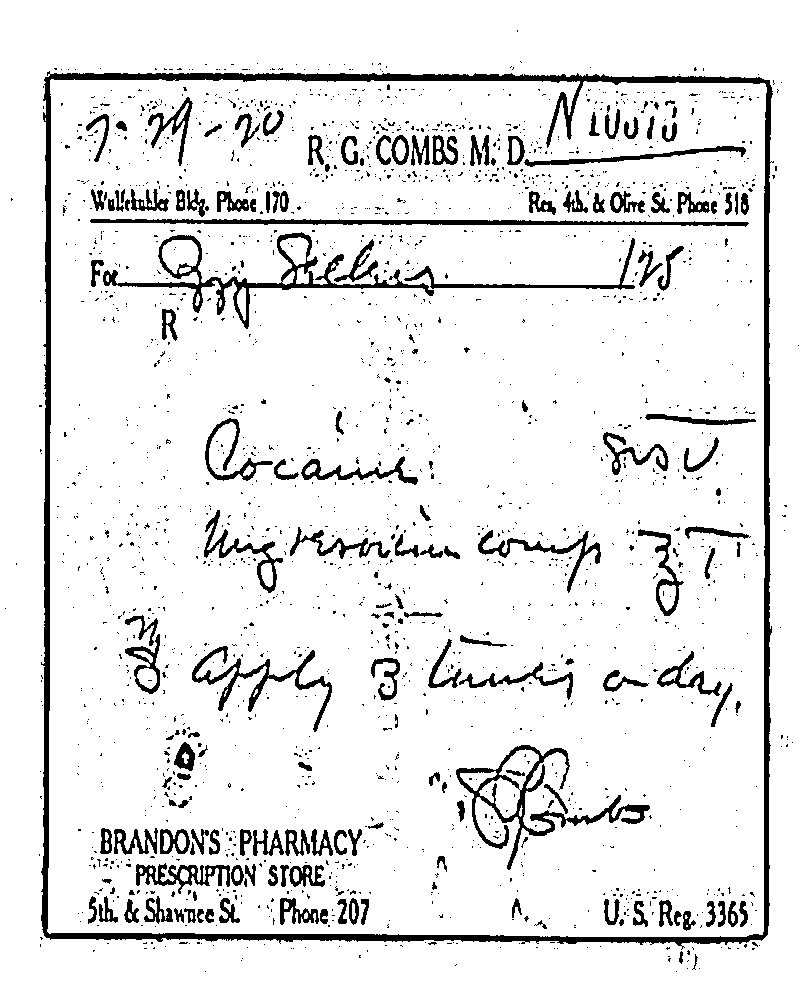 7-29-20 R. G. COMBS M. D. N
Wulfekuhler Bldg. Phone 170 Res. 4th. & Olive St. Phone 518
For 125
R
Cocaine grs V
Ung resorcin comp ℥ 1
apply 3 times a day.
Combs
BRANDON'S PHARMACY
PRESCRIPTION STORE
5th. & Shawnee St. Phone 207 U. S. Reg. 3365